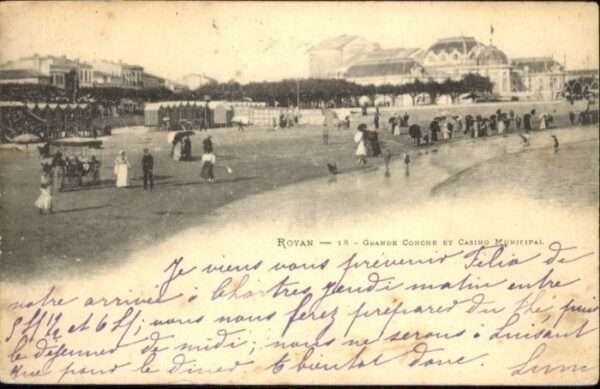 ROYAN — 18 - GRANDE CONCHE ET CASINO MUNICIPAL
Je viens vous prévenir Félia de
notre arrivée à Chartres Jeudi matin entre
5h ½ et 6h; vous nous ferez préparer du thé, puis
le déjeuner de midi; nous ne serons à Luisant
que pour le dîner. A bientôt donc.